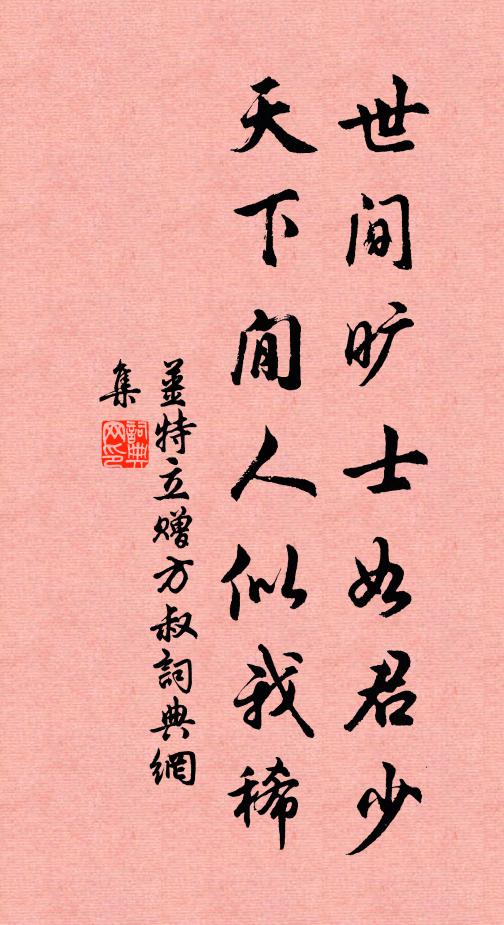 世間旷士如君少
天下閒人似我稀
姜特立赠方叔詞典網
集
詞典网印